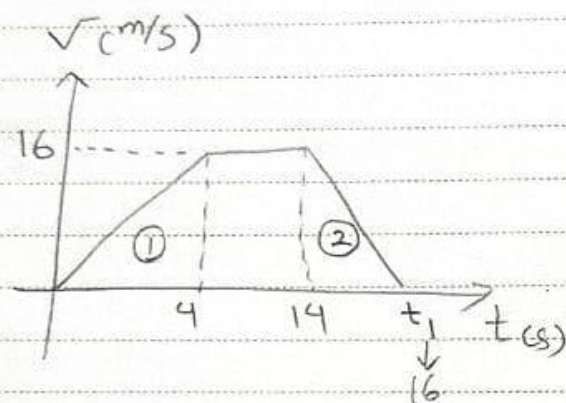 V (m/s)
16
① ②
4 14 t₁ t(s)
↓
16